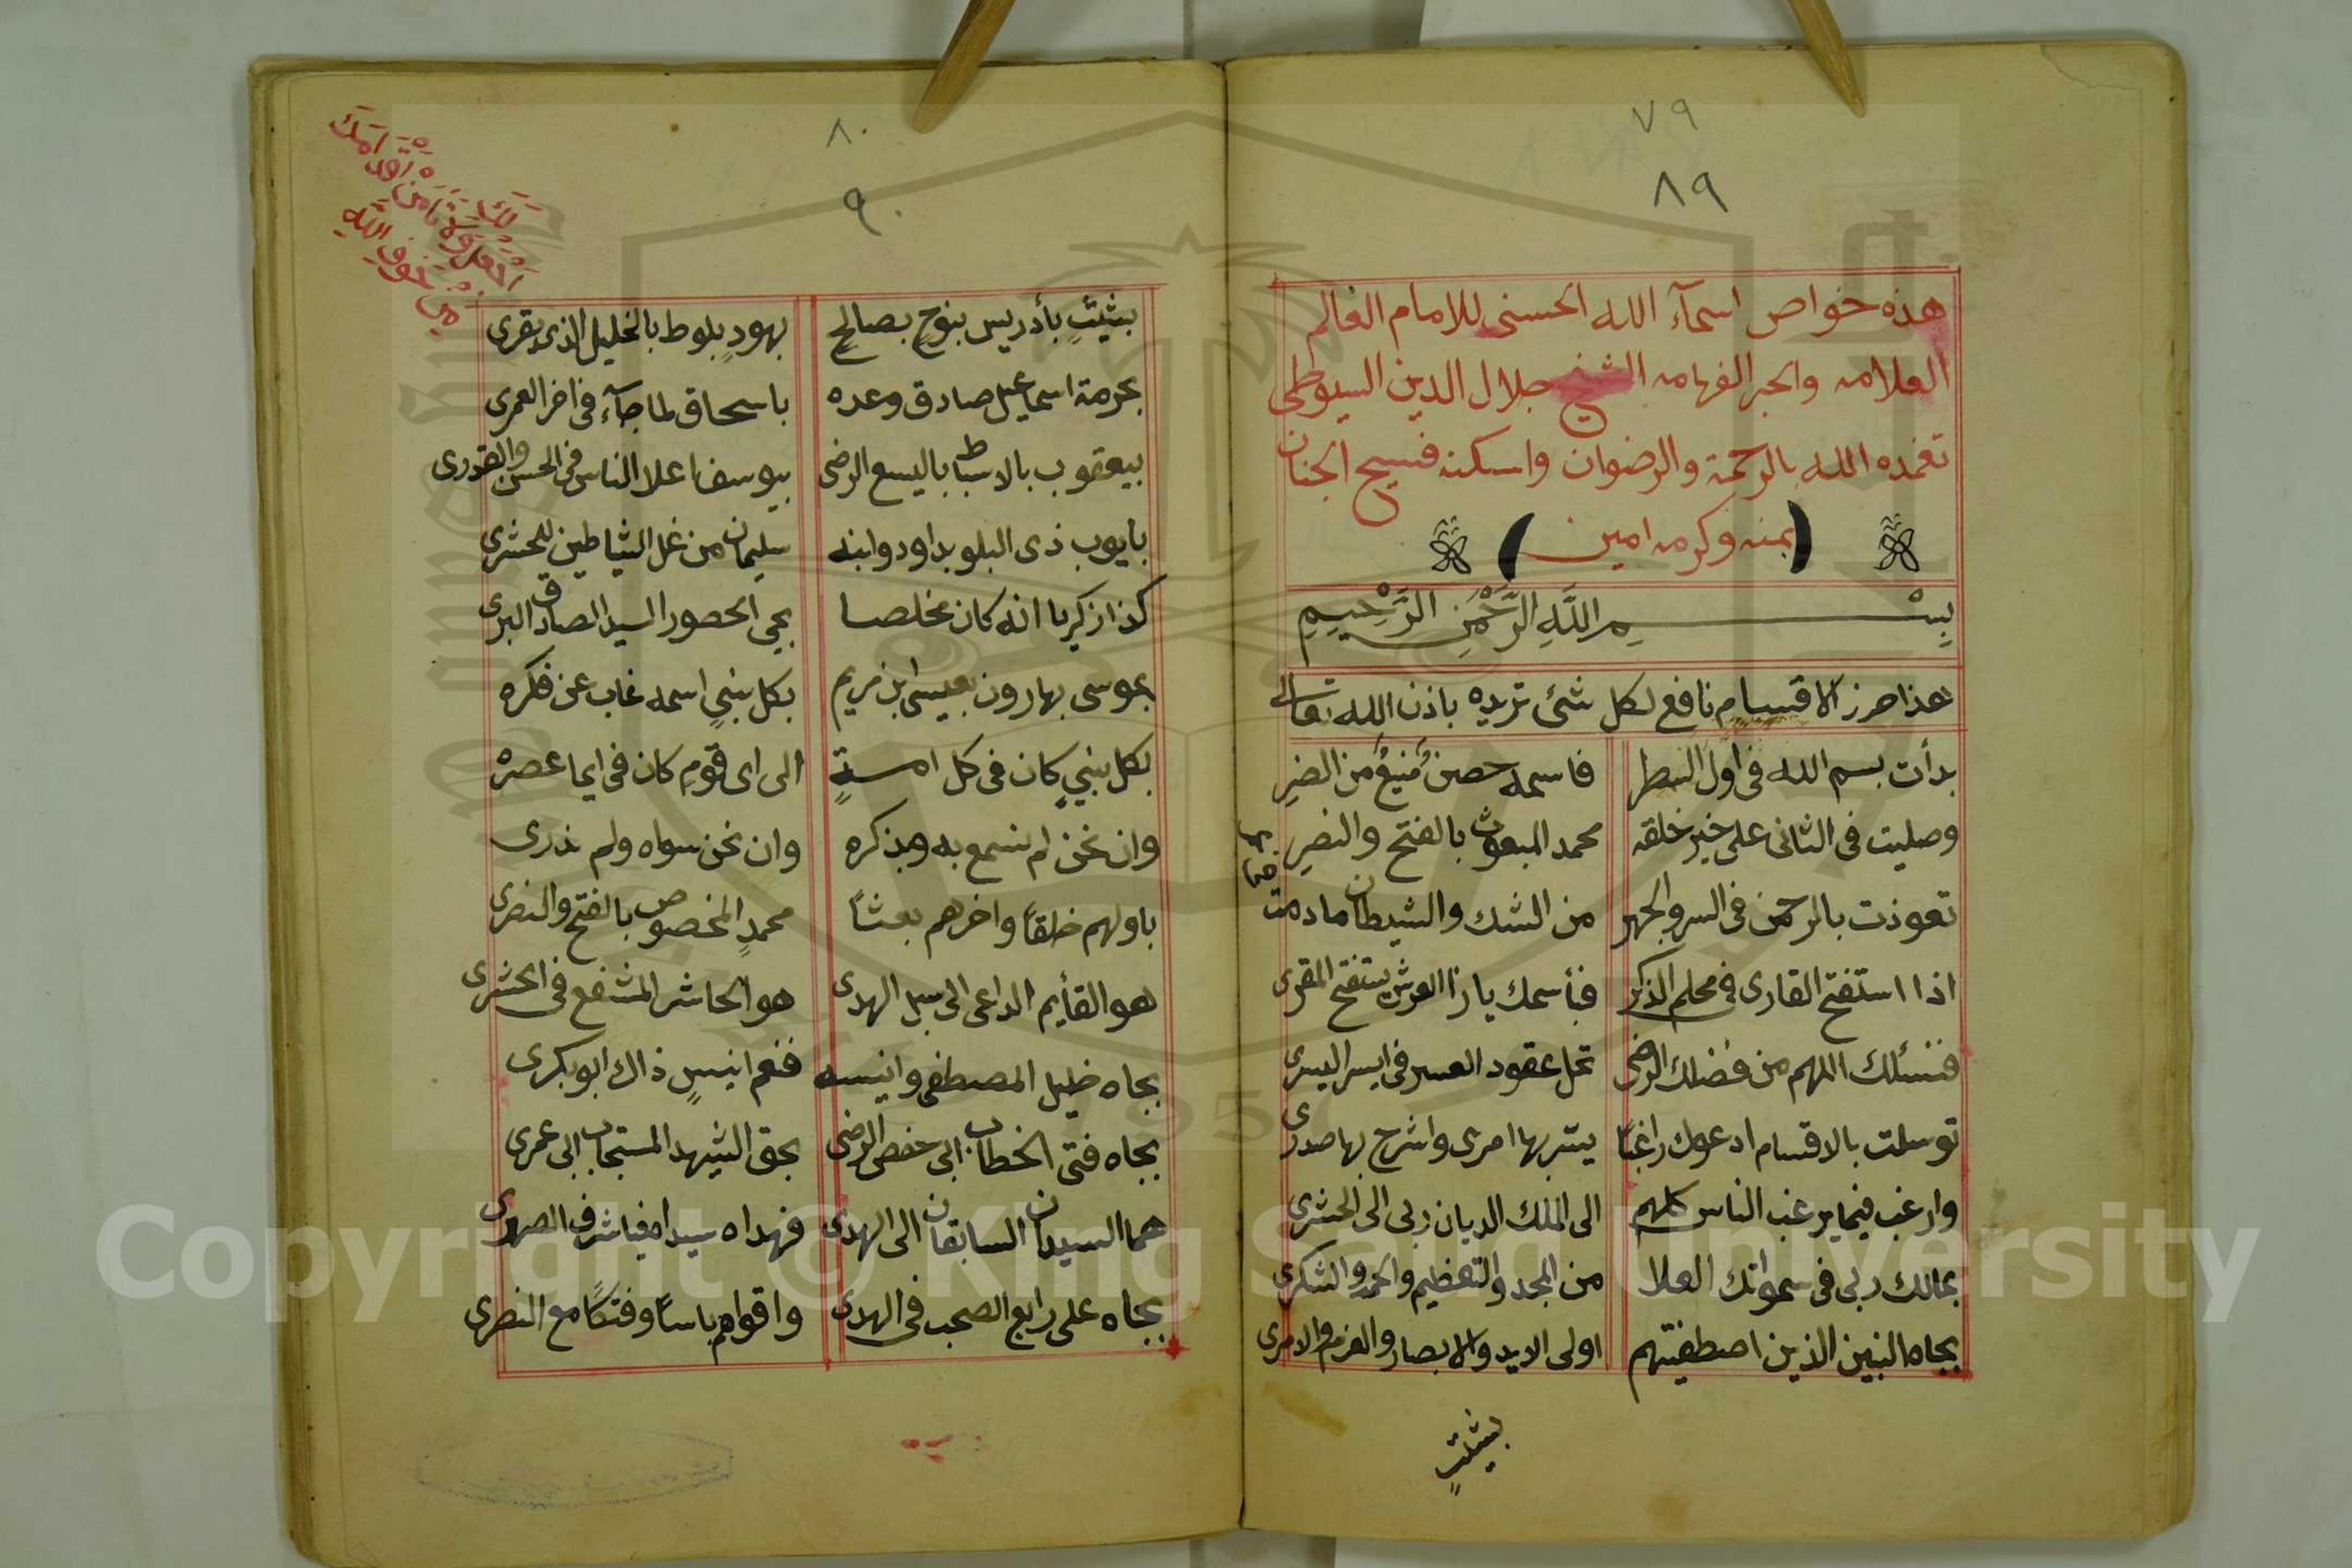 ٧٩
٨٩
هذه خواص اسمآء الله الحسنى للامام العالم
العلامه والحبر الفهامه الشيخ جلال الدين السيوطى
تغمده الله بالرحمة والرضوان واسكنه فسيح الجنان
(بمنه وكرمه امين)
بِسْمِ اللَّهِ الرَّحْمَنِ الرَّحِيمِ
هذا حرز الاقسام نافع لكل شئ تريده باذن الله تعالى
بدأت بسم الله فى اول السطر فاسمه حصنٌ منيعٌ من الضرِ
وصليت فى الثانى على خير خلقه محمد المبعوث بالفتح والنصرِ
تعوذت بالرحمن فى السر والجهر من الشك والشيطان مادمت
اذا استفتح القارى فى محلم الذكر فبأسمك ياذا العرش يستفتح المقرى
فنسئلك اللهم من فضلك الرضى تحل عقود العسر فى ايسر اليسرى
توسلت بالاقسام ادعوك راغبًا يسّر بها امرى واشرح بها صدرى
وارغب فيما يرغب الناس كلهم الى الملك الديان ربى الى الحشرى
بمالك ربى فى سمواتك العلا من المجد والتعظيم والحمد والشكرى
بجاه النبين الذين اصطفيتهم اولى الايد والابصار والعزم والامرى
بشيثٍ
٨٠
٩٠
بشيثٍ بأدريس بنوحٍ بصالحٍ بهودٍ بلوط بالخليل الذى يقرى
بحرمة اسماعيل صادق وعده باسحاق لما جآء فى اخر العمرى
بيعقوب بالاسباط باليسع الرضى بيوسف اعلا الناس فى الحسن والقدرى
بايوب ذى البلو بداود وابنه سليمان من غل الشياطين للحشرى
كذا زكريا انه كان مخلصا يحيى الحصور السيد الصادق البرى
بموسى بهارون بعيسى ابن مريم بكل نبيٍ اسمه غاب عن فكره
بكل نبيٍ كان فى كل امةٍ الى اى قومٍ كان فى ايما عصره
وان نحن لم نسمع به وبذكره وان نحن سواه ولم ندرى
باولهم خلقًا واخرهم بعثًا محمدٍ المخصوص بالفتح والنصرى
هو القأيم الداعى الى سبل الهدى هو الحاشر المشفع فى الحشرى
بجاه خليل المصطفى وانيسه فنعم انيسٍ ذاك ابو بكرى
بجاه فتى الخطاب ابى حفص الرضى بحق الشيهد المستجاب ابى عمرى
هما السيدان السابقان الى الهدى فهداه سيدا فيا شرف الصهرى
بجاه على رابع الصحب فى الهدى واقواهم باسًا وفتكًا مع النصرى